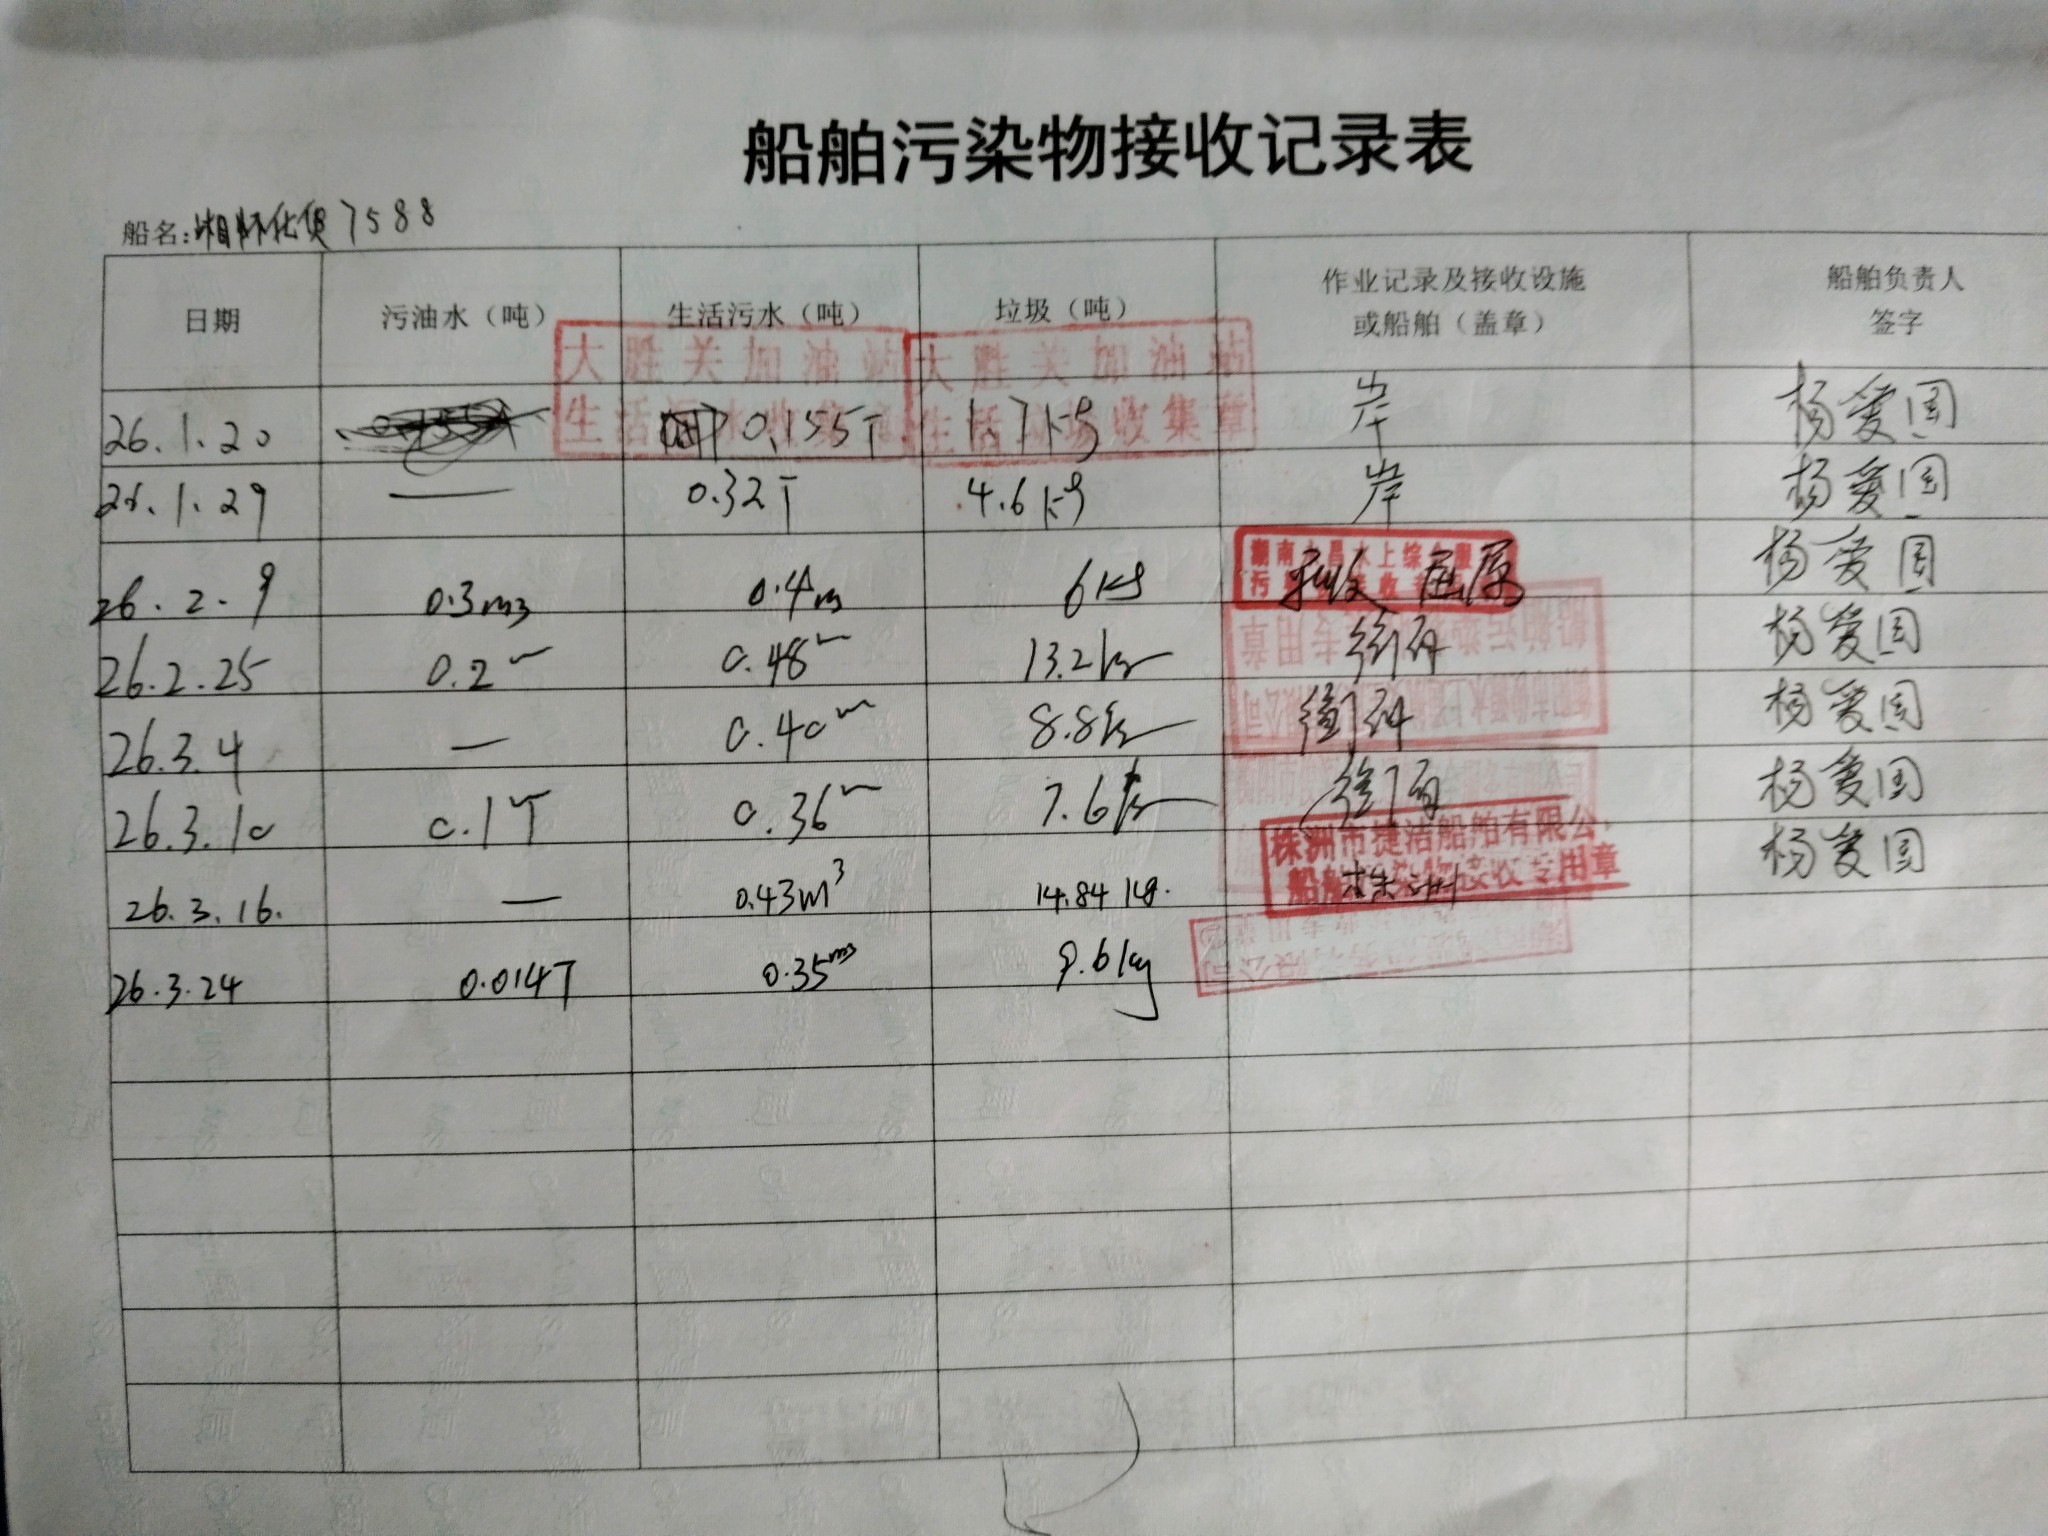 船舶污染物接收记录表
船名:湘怀化货7588
日期 污油水（吨） 生活污水（吨） 垃圾（吨） 作业记录及接收设施或船舶（盖章） 船舶负责人签字
大胜关加油站 大胜关加油站
生活污水收集章 生活垃圾收集章
26.1.20 0.155T 1.7kg 岸 杨爱国
26.1.29 — 0.32T 4.6kg 岸 杨爱国
26.2.9 0.3m3 0.4m 6kg 屈原 杨爱国
26.2.25 0.2 0.48 13.2kg 杨爱国
26.3.4 — 0.40 8.8kg 杨爱国
26.3.10 0.1T 0.36 7.6kg 杨爱国
株洲市捷洁船舶有限公
船舶污染物接收专用章
26.3.16. — 0.43m³ 14.84kg. 株洲 杨爱国
26.3.24 0.014T 0.35m3 9.6kg